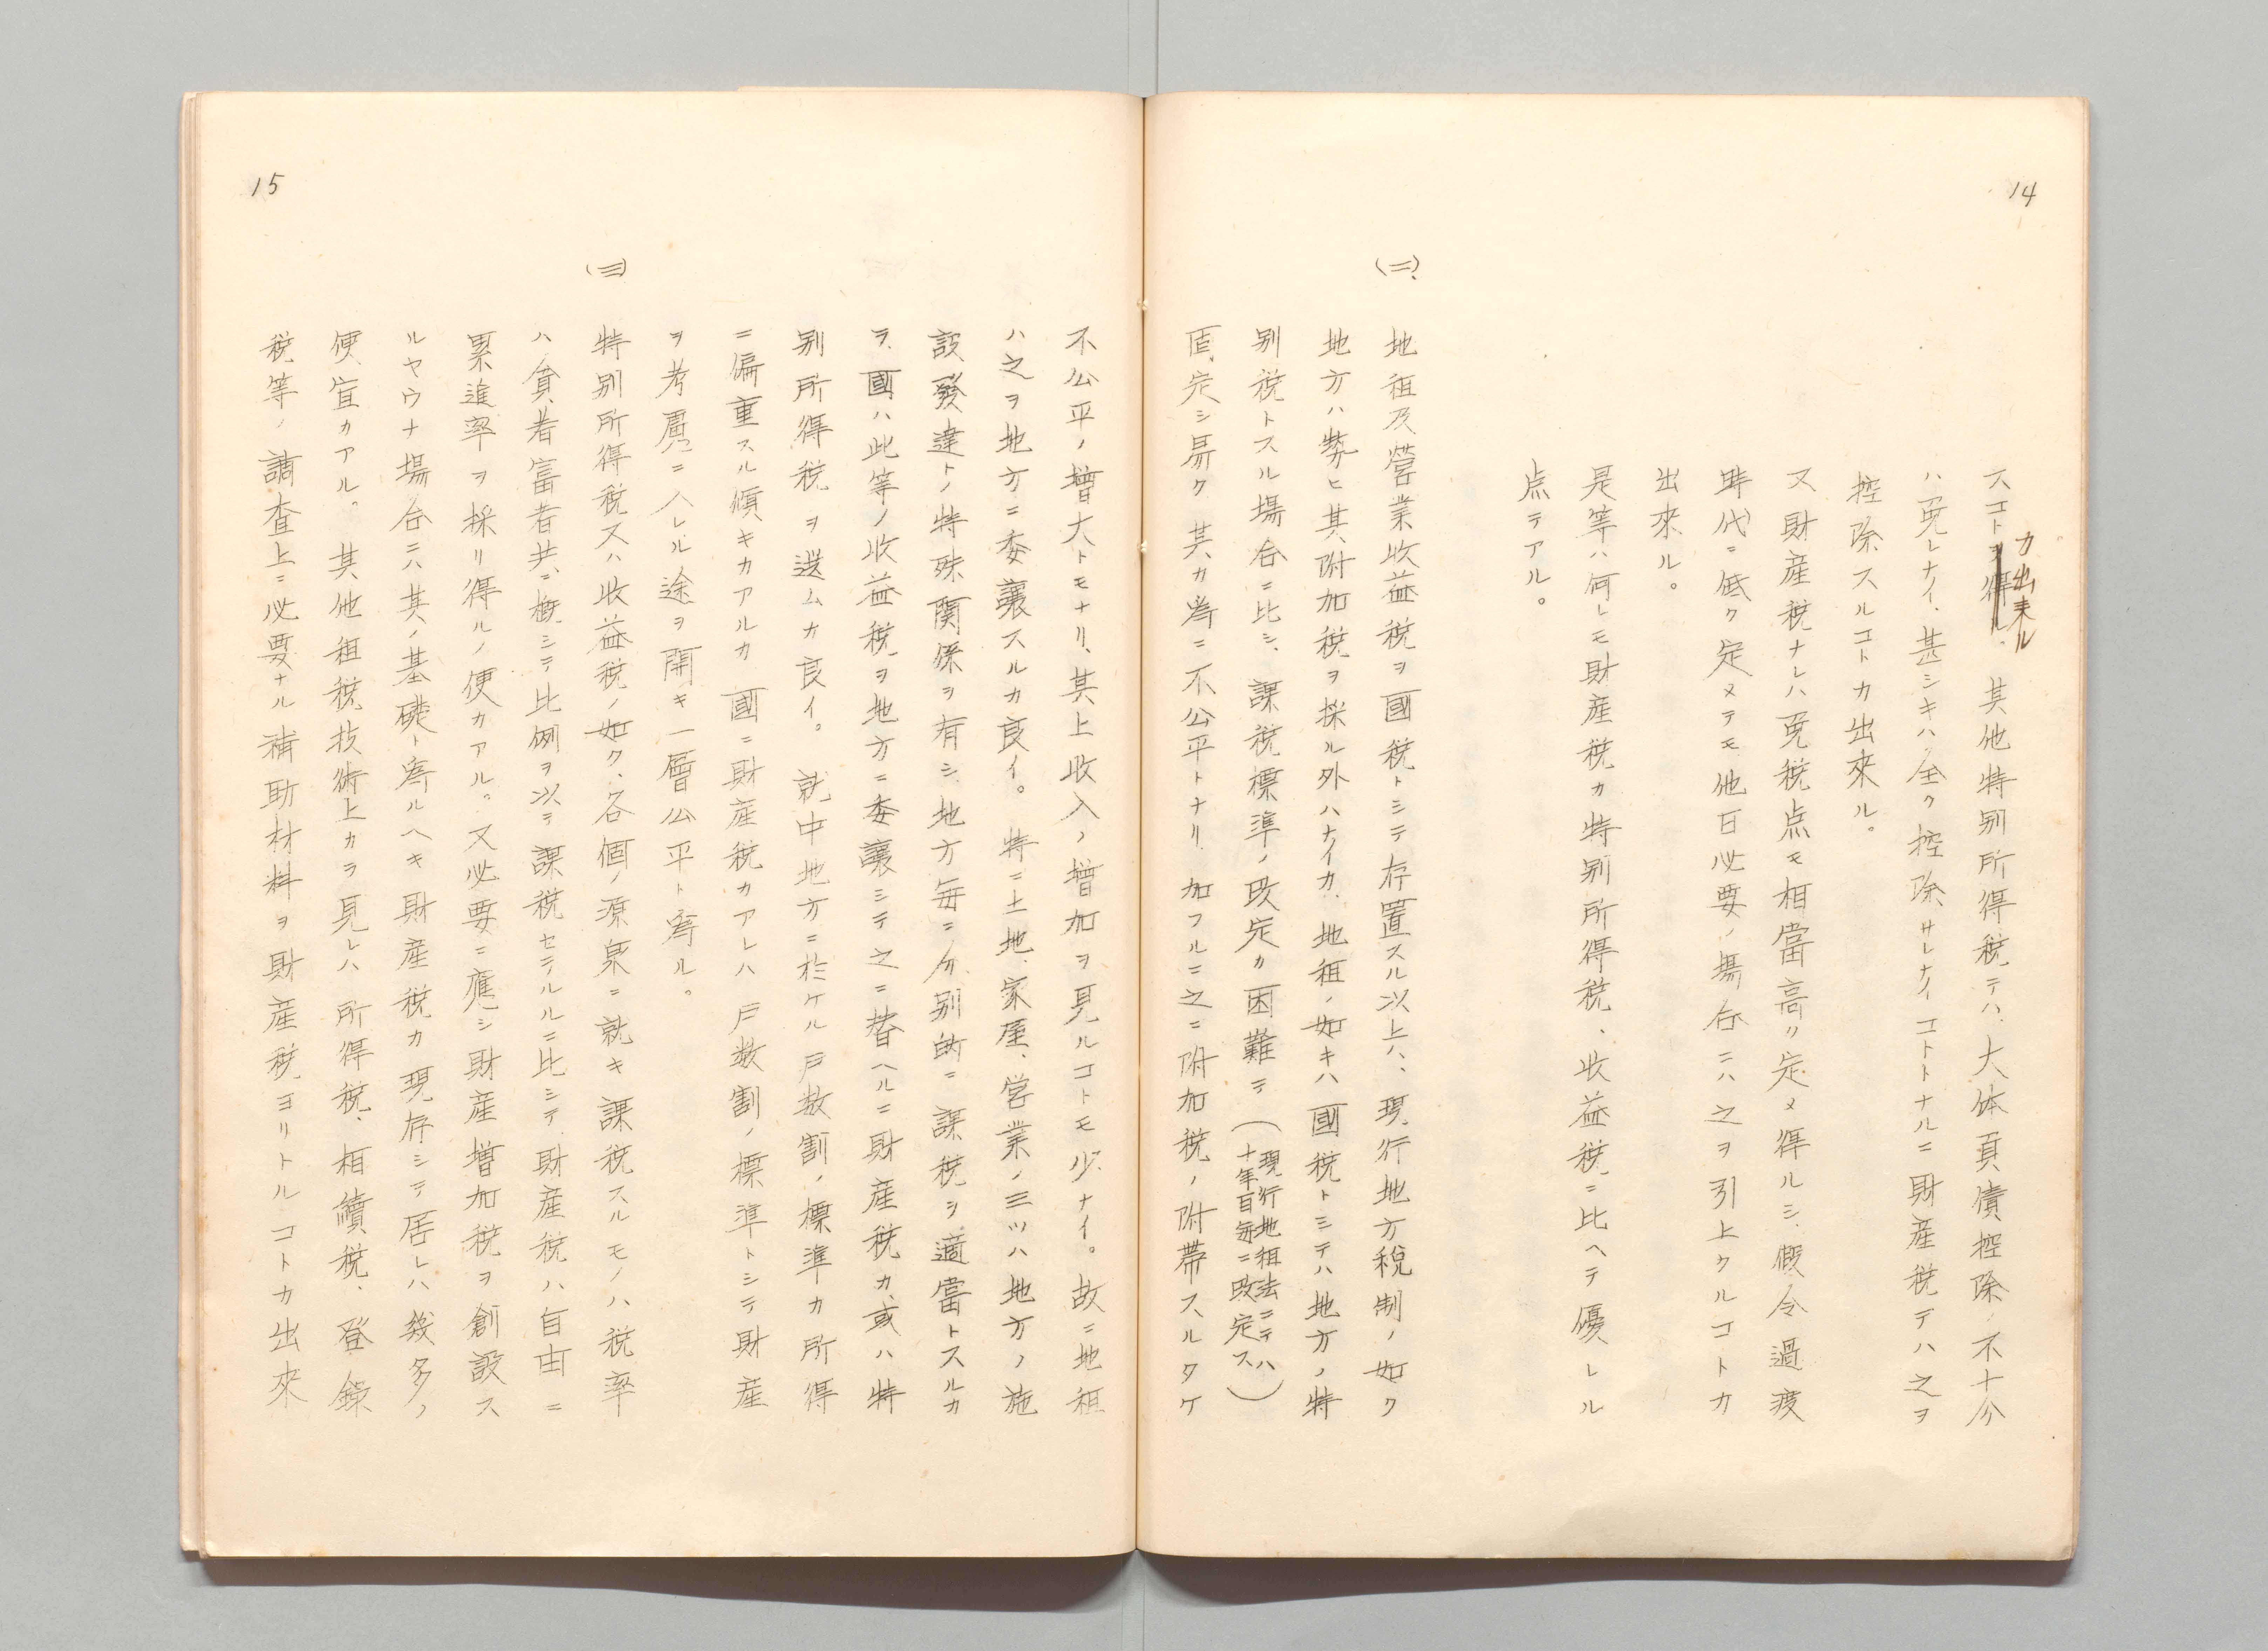 14
スコトヲ得ル、其他特別所得税テハ、大体負債控除ノ不十分
カ出来ル
ハ免レナイ、甚シキハ全ク控除サレナイコトトナルニ財産税テハ之ヲ
控除スルコトカ出來ル。
又財産税ナレハ免税点モ相當高ク定メ得ルシ、假令過渡
時代ニ低ク定メテモ他日必要ノ場合ニハ之ヲ引上クルコトカ
出來ル。
是等ハ何レモ財産税カ特別所得税、收益税ニ比ヘテ優レル
点テアル。
(二)、地租及營業收益税ヲ國税トシテ存置スル以上ハ、現行地方税制ノ如ク
地方ハ勢ヒ其附加税ヲ採ル外ハナイカ、地租ノ如キハ國税トシテハ地方ノ特
別税トスル場合ニ比シ、課税標準ノ改定カ困難テ(現行地租法ニテハ
十年目毎ニ改定ス)
固定シ易ク其カ為ニ不公平トナリ、加フルニ之ニ附加税ノ附帯スルタケ
不公平ノ増大トモナリ、其上收入ノ増加ヲ見ルコトモ少ナイ。故ニ地租
ハ之ヲ地方ニ委讓スルカ良イ。特ニ土地、家屋、営業ノ三ツハ地方ノ施
設發達トノ特殊関係ヲ有シ、地方毎ニ分別的ニ課税シ適當トスルカ
ヲ、國ハ此等ノ收益税ヲ地方ニ委讓シテ之ニ替ヘルニ財産税カ、或ハ特
別所得税ヲ選ムカ良イ。就中地方ニ於ケル戸数割ノ標準カ所得
ニ偏重スル傾キカアルカ國ニ財産税カアレハ戸数割ノ標準トシテ財産
ヲ考慮ニ入レル途ヲ開キ一層公平ト為ル。
(三)特別所得税又ハ收益税ノ如ク、各個ノ源泉ニ就キ課税スルモノハ税率
ハ貧者富者共ニ概シテ比例ヲ以テ課税セラルルニ比シテ、財産税ハ自由ニ
累進率ヲ採リ得ルノ便カアル。又必要ニ應シ財産増加税ヲ創設ス
ルヤウナ場合ニハ其ノ基礎ト為ルヘキ財産税カ現存シテ居レハ幾多ノ
便宜カアル。其他租税技術上カラ見レハ所得税、相續税、登録
税等ノ調査上ニ必要ナル補助材料ヲ財産税ヨリトルコトカ出來
15